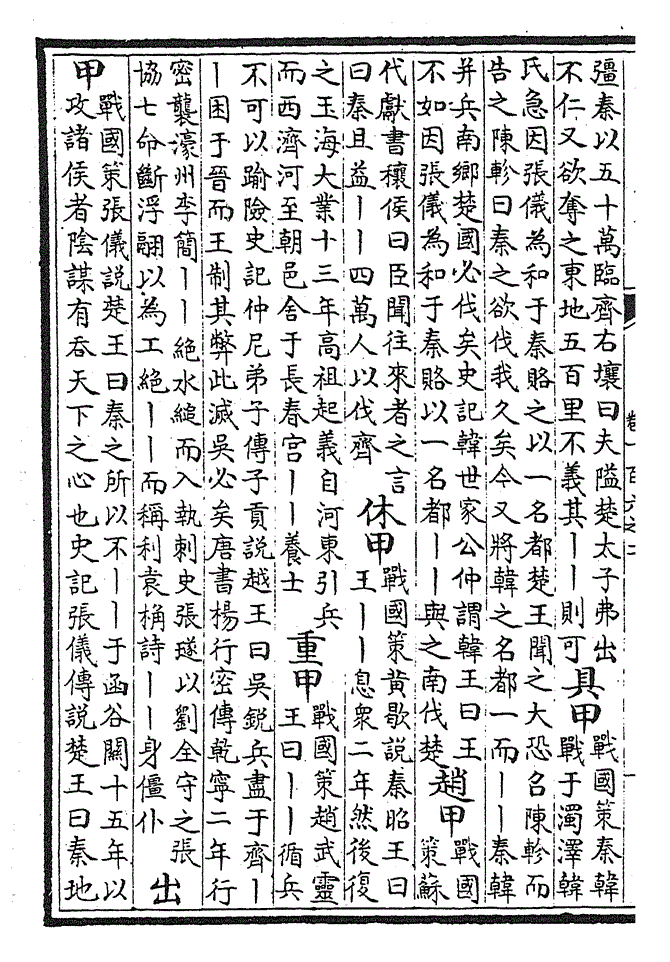 卷一百六之二
彊秦以五十萬臨齊右壤曰夫隘楚太子弗出
不仁又欲奪之東地五百里不義其丨丨則可
具甲
戰國策秦韓
戰于濁澤韓
氏急因張儀為和于秦賂之以一名都楚王聞之大恐召陳軫而
告之陳軫曰秦之欲伐我久矣今又將韓之名都一而丨丨秦韓
并兵南鄉楚國必伐矣史記韓世家公仲謂韓王曰王
不如因張儀為和于秦賂以一名都丨丨與之南伐楚
趙甲
戰國
策蘇
代獻書穰侯曰臣聞往來者之言
曰秦且益丨丨四萬人以伐齊
休甲
戰國策黃歇說秦昭王曰
王丨丨息衆二年然後復
之玉海大業十三年高祖起義自河東引兵
而西濟河至朝邑舍于長春宮丨丨養士
重甲
戰國策趙武靈
王曰丨丨循兵
不可以踰險史記仲尼弟子傳子貢說越王曰吳銳兵盡于齊丨
丨困于晉而王制其弊此滅吳必矣唐書楊行密傳乾寧二年行
密襲濠州李簡丨丨絶水縋而入執刺史張璲以劉全守之張
協七命斷浮翮以為工絶丨丨而稱利袁桷詩丨丨身僵仆
出
甲
戰國策張儀說楚王曰秦之所以不丨丨于函谷關十五年以
攻諸侯者陰謀有吞天下之心也史記張儀傳說楚王曰秦地